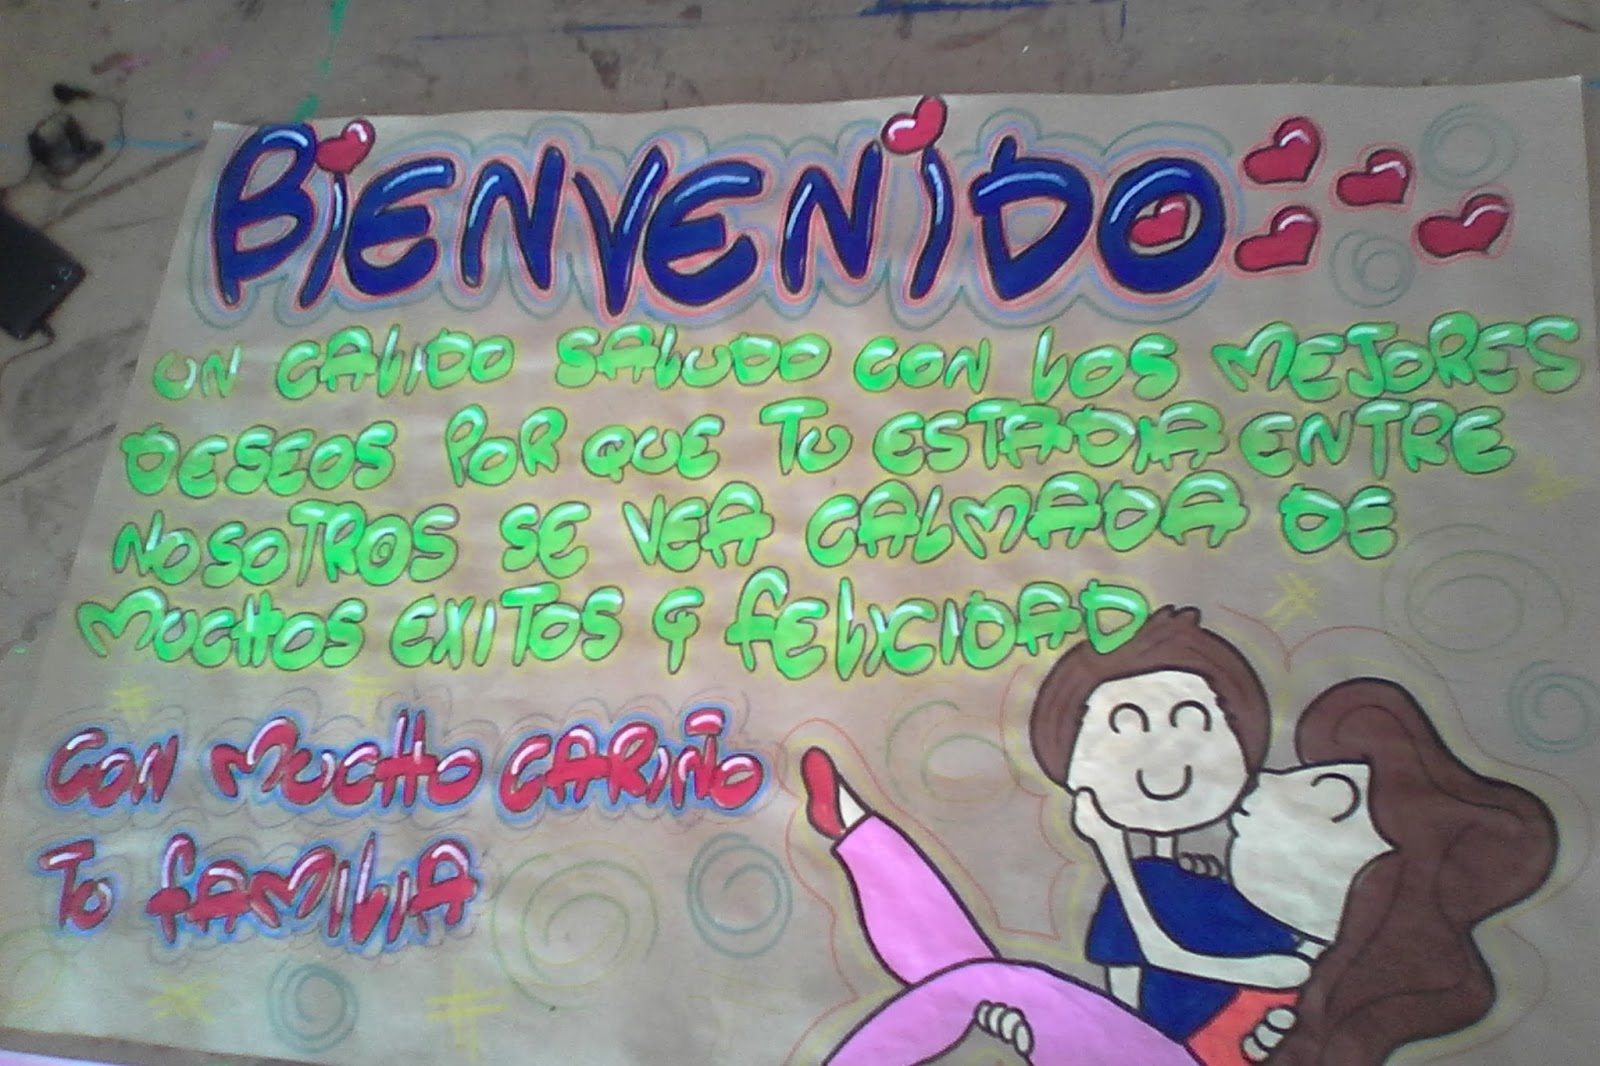 BiENVENiDO
UN CALIDO SALUDO CON LOS MEJORES
DESEOS POR QUE TU ESTADIA ENTRE
NOSOTROS SE VEA CALMADA DE
MUCHOS EXITOS Y FELICIDAD
CON MUCHO CARIÑO
TU FAMILIA